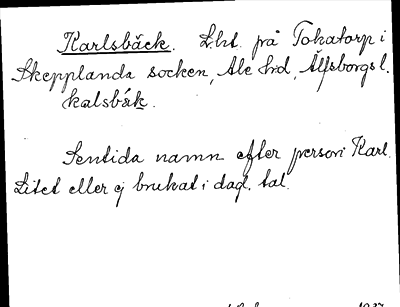 Karlsbäck. L.ht. på Tokatorp i
Skepplanda socken, Ale hd, Älfsborgs l.
kalsbäk.
Sentida namn efter person Karl.
Litet eller ej brukat i dagl. tal.